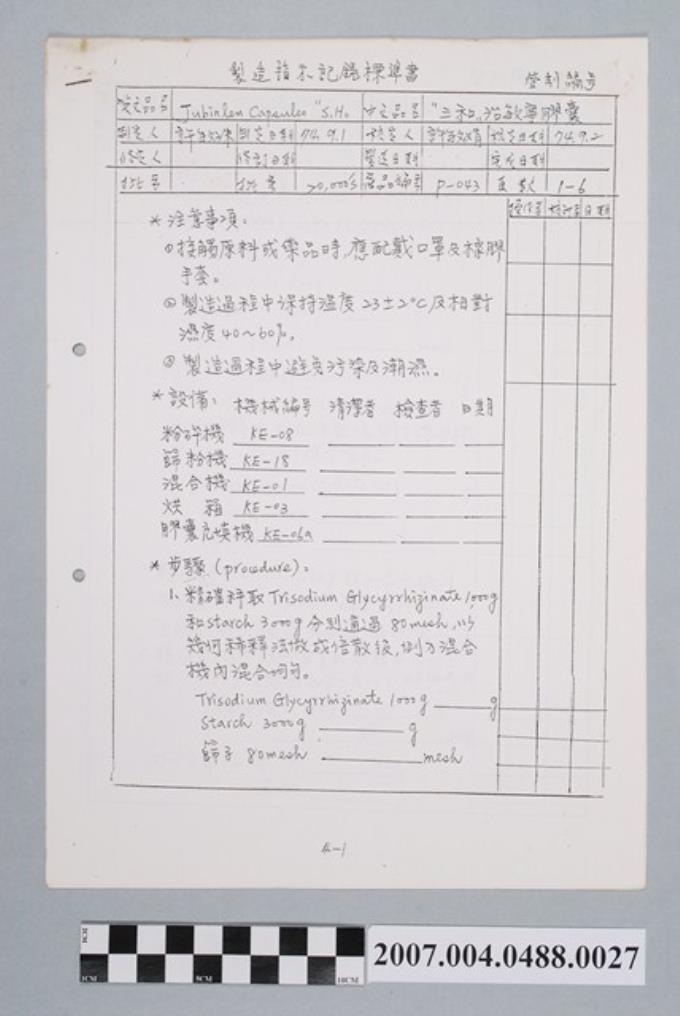 製造指示記錄標準書
管制編号
英文品名 Jubinlon Capsules "S.H. 中文品名 "三和"治敏寧膠囊
制定人 制定日期 74.9.1 核定人 核定日期 74.9.2
修定人 修訂日期 製造日期 完成日期
批号 批量 20,000's 產品編号 P-043 頁數 1-6
操作者 核對者 日期
* 注意事項:
① 接觸原料或藥品時,應配戴口罩及橡膠
手套。
② 製造過程中保持溫度 23±2°C 及相對
濕度 40~60%。
③ 製造過程中避免污染及潮濕。
* 設備: 機械編号 清潔者 檢查者 日期
粉碎機 KE-08
篩粉機 KE-18
混合機 KE-01
烘箱 KE-03
膠囊充填機 KE-06a
* 步驟 (procedure):
1. 精確秤取 Trisodium Glycyrrhizinate 1,000g
和 starch 3000g 分別通過 80 mesh, 以
幾何稀釋法做成倍散後, 倒入混合
機內混合均勻。
Trisodium Glycyrrhizinate 1000g g
Starch 3000g g
篩子 80 mesh mesh
4-1
1CM 5CM 10CM
2007.004.0488.0027